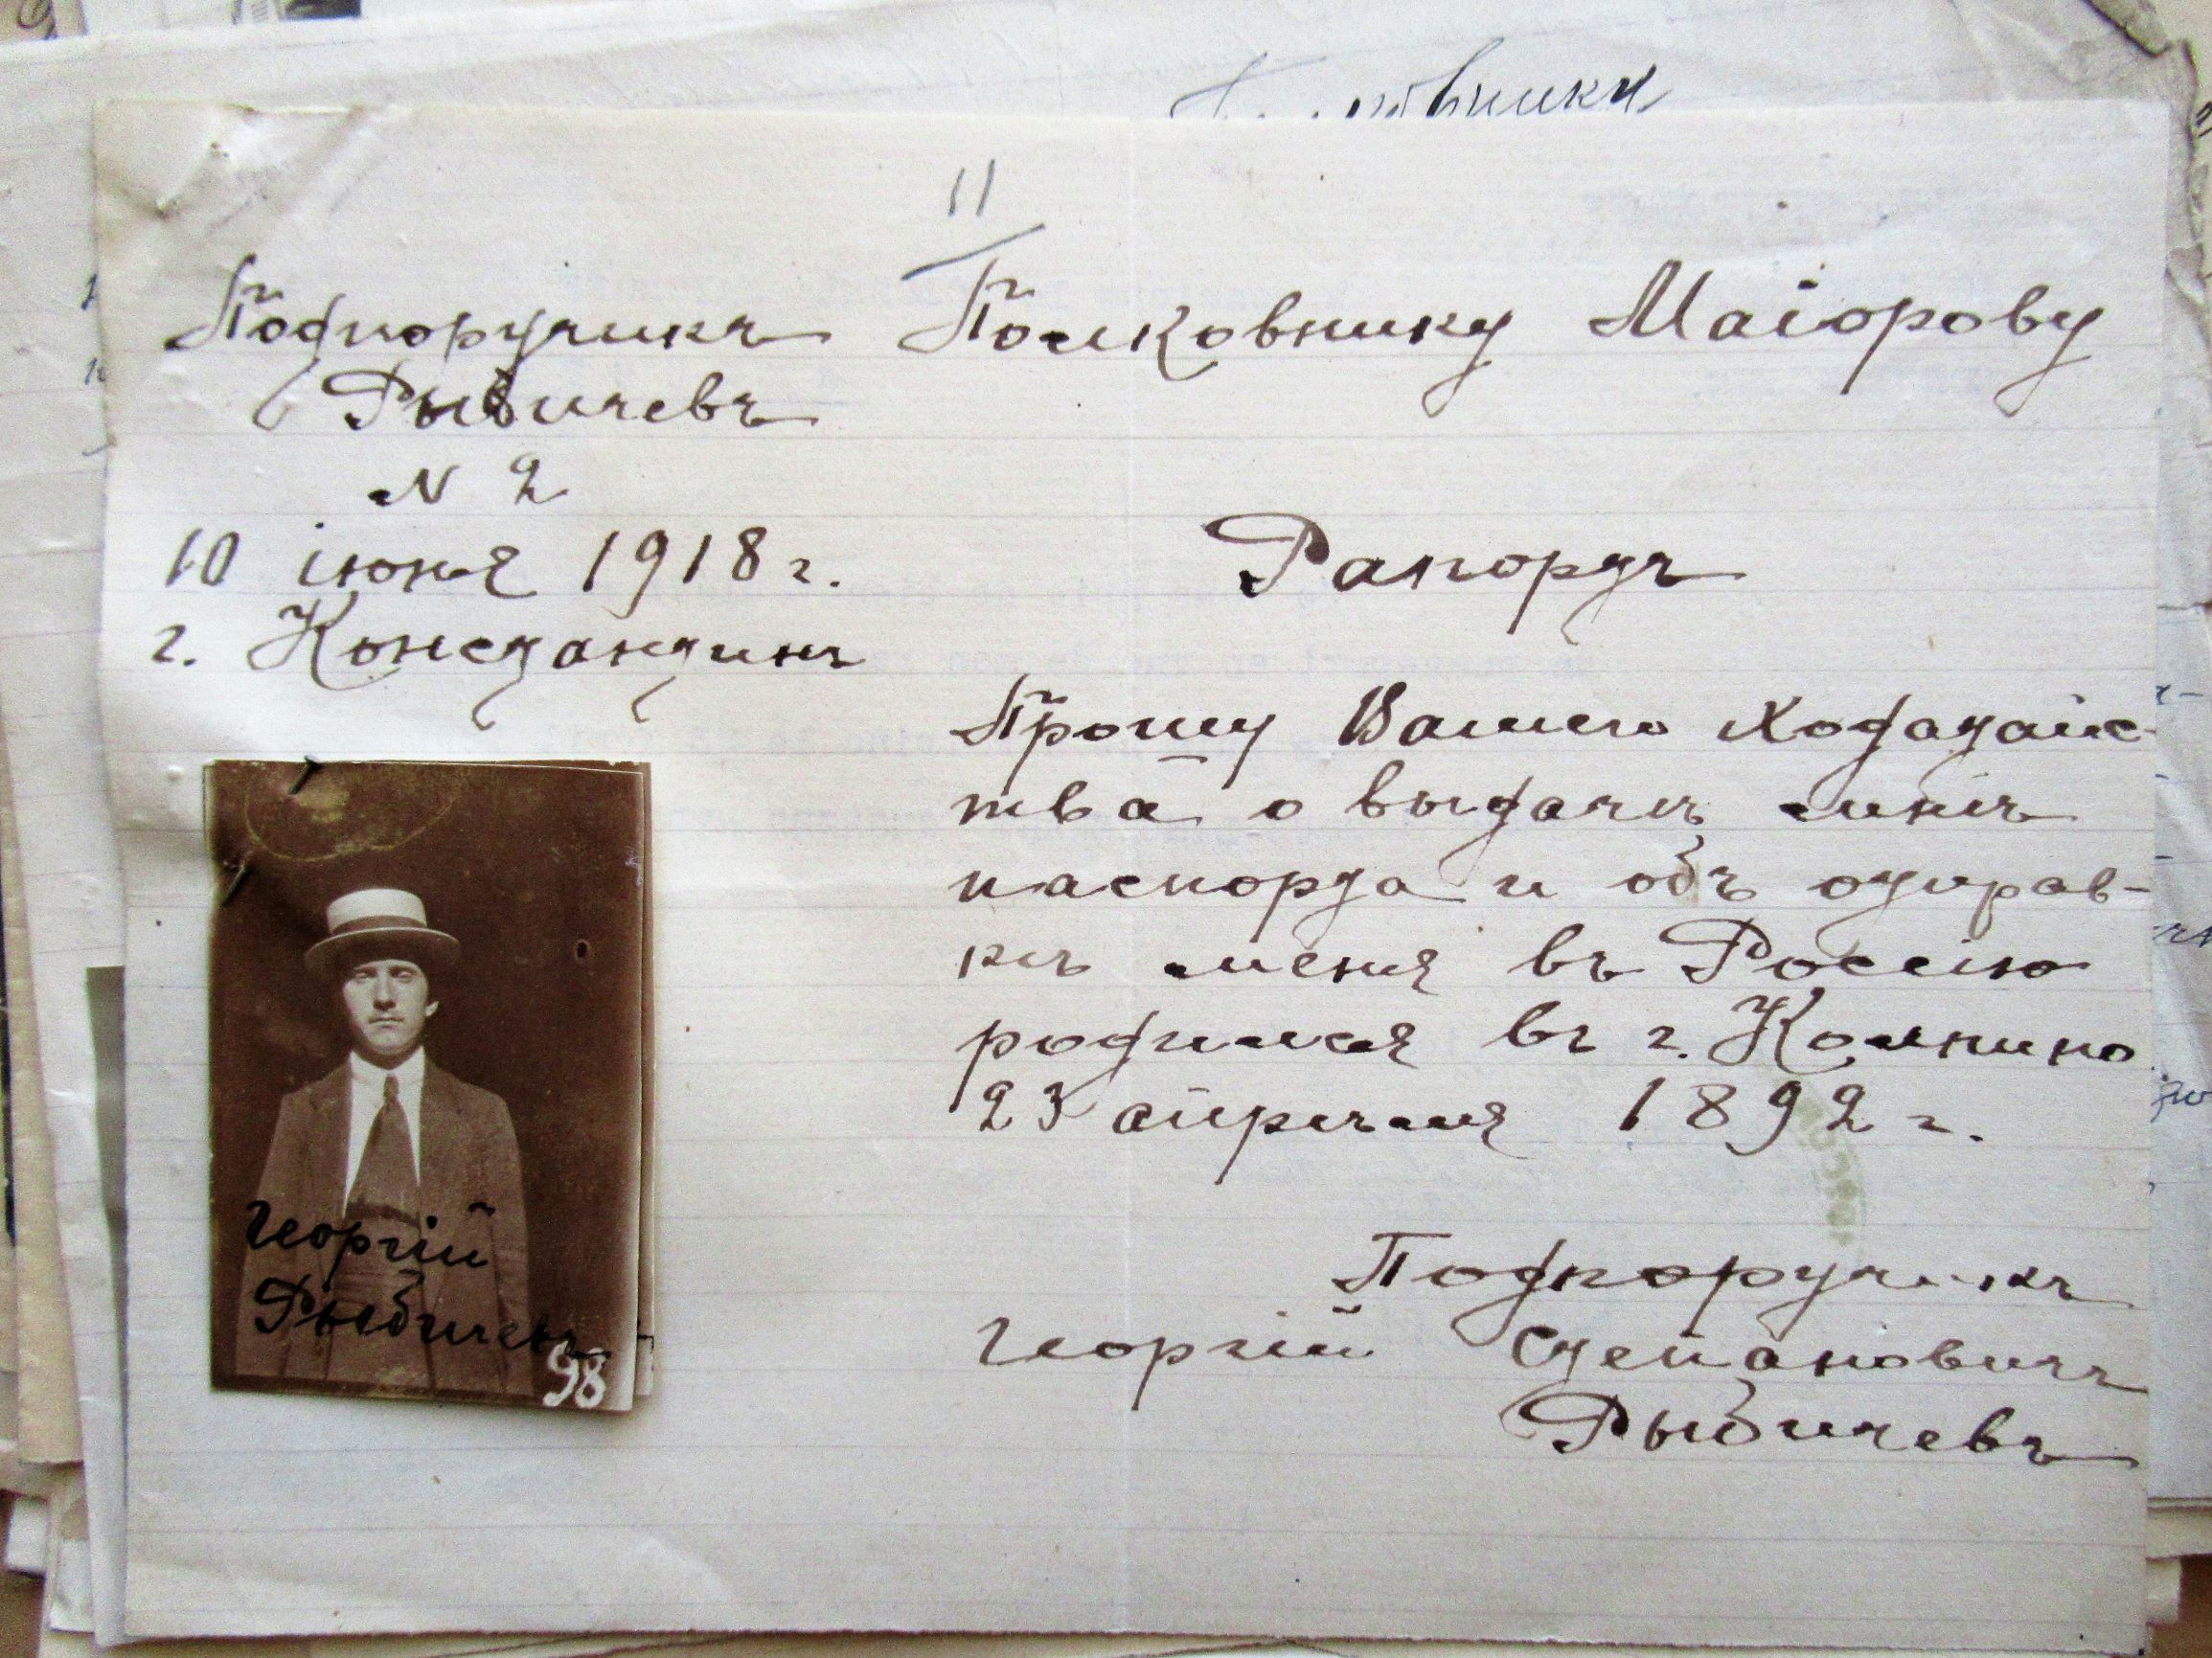 11
Подпоручикъ
Рыбичевъ
N 2
10 іюня 1918 г.
г. Константинъ
Полковнику Маіорову
Рапортъ
Прошу Вашего ходатайс-
тва о выдачѣ мнѣ
паспорта и объ отправ-
кѣ меня въ Россію
родился въ г. Колпино
23 апрѣля 1892 г.
Подпоручикъ
Георгій Степановичъ
Рыбичевъ
Георгій
Рыбичевъ
98